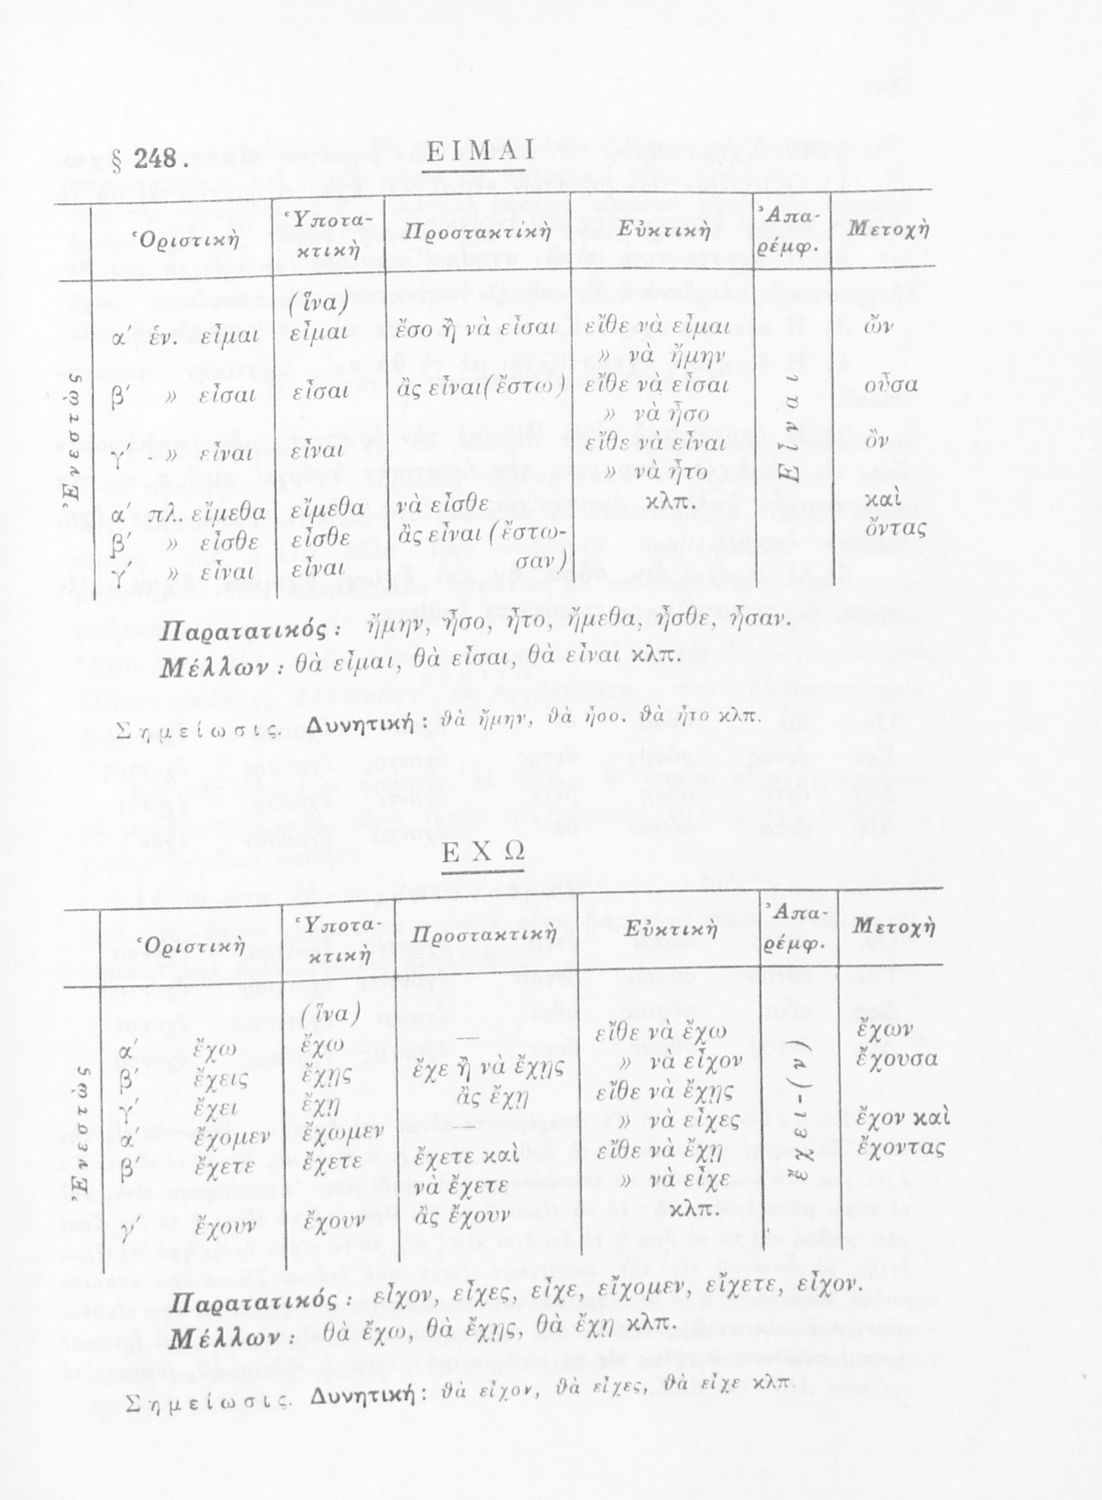 § 248. ΕΙΜΑΙ
Ὁριστικὴ Ὑποτα- Προστακτικὴ Εὐκτικὴ Ἀπα- Μετοχὴ
κτικὴ ρέμφ.
Ἐνεστὼς
(ἵνα)
α′ ἑν. εἶμαι εἶμαι ἔσο ἢ νὰ εἶσαι εἴθε νὰ εἶμαι ὤν
» νὰ ἤμην
β′ » εἶσαι εἶσαι ἂς εἶναι (ἔστω) εἴθε νὰ εἶσαι οὖσα
» νὰ ἦσο
Εἶναι
γ′ » εἶναι εἶναι εἴθε νὰ εἶναι ὂν
» νὰ ἦτο
α′ πλ. εἴμεθα εἴμεθα νὰ εἶσθε κλπ. καὶ
β′ » εἶσθε εἶσθε ἂς εἶναι (ἔστω- ὄντας
γ′ » εἶναι εἶναι σαν)
Παρατατικός : ἤμην, ἦσο, ἦτο, ἤμεθα, ἦσθε, ἦσαν.
Μέλλων : θὰ εἶμαι, θὰ εἶσαι, θὰ εἶναι κλπ.
Σημείωσις. Δυνητική : θὰ ἤμην, θὰ ἦσο. θὰ ἦτο κλπ.
ΕΧΩ
Ὁριστικὴ Ὑποτα- Προστακτικὴ Εὐκτικὴ Ἀπα- Μετοχὴ
κτικὴ ρέμφ.
Ἐνεστὼς
(ἵνα)
α′ ἔχω ἔχω — εἴθε νὰ ἔχω ἔχων
β′ ἔχεις ἔχῃς ἔχε ἢ νὰ ἔχῃς » νὰ εἶχον ἔχουσα
γ′ ἔχει ἔχῃ ἂς ἔχῃ εἴθε νὰ ἔχῃς
α′ ἔχομεν ἔχωμεν — » νὰ εἶχες ἔχον καὶ
ἔχει-(ν)
β′ ἔχετε ἔχετε ἔχετε καὶ εἴθε νὰ ἔχῃ ἔχοντας
νὰ ἔχετε » νὰ εἶχε
γ′ ἔχουν ἔχουν ἂς ἔχουν κλπ.
Παρατατικός : εἶχον, εἶχες, εἶχε, εἴχομεν, εἴχετε, εἶχον.
Μέλλων : θὰ ἔχω, θὰ ἔχῃς, θὰ ἔχῃ κλπ.
Σημείωσις. Δυνητική : θὰ εἶχον, θὰ εἶχες, θὰ εἶχε κλπ.